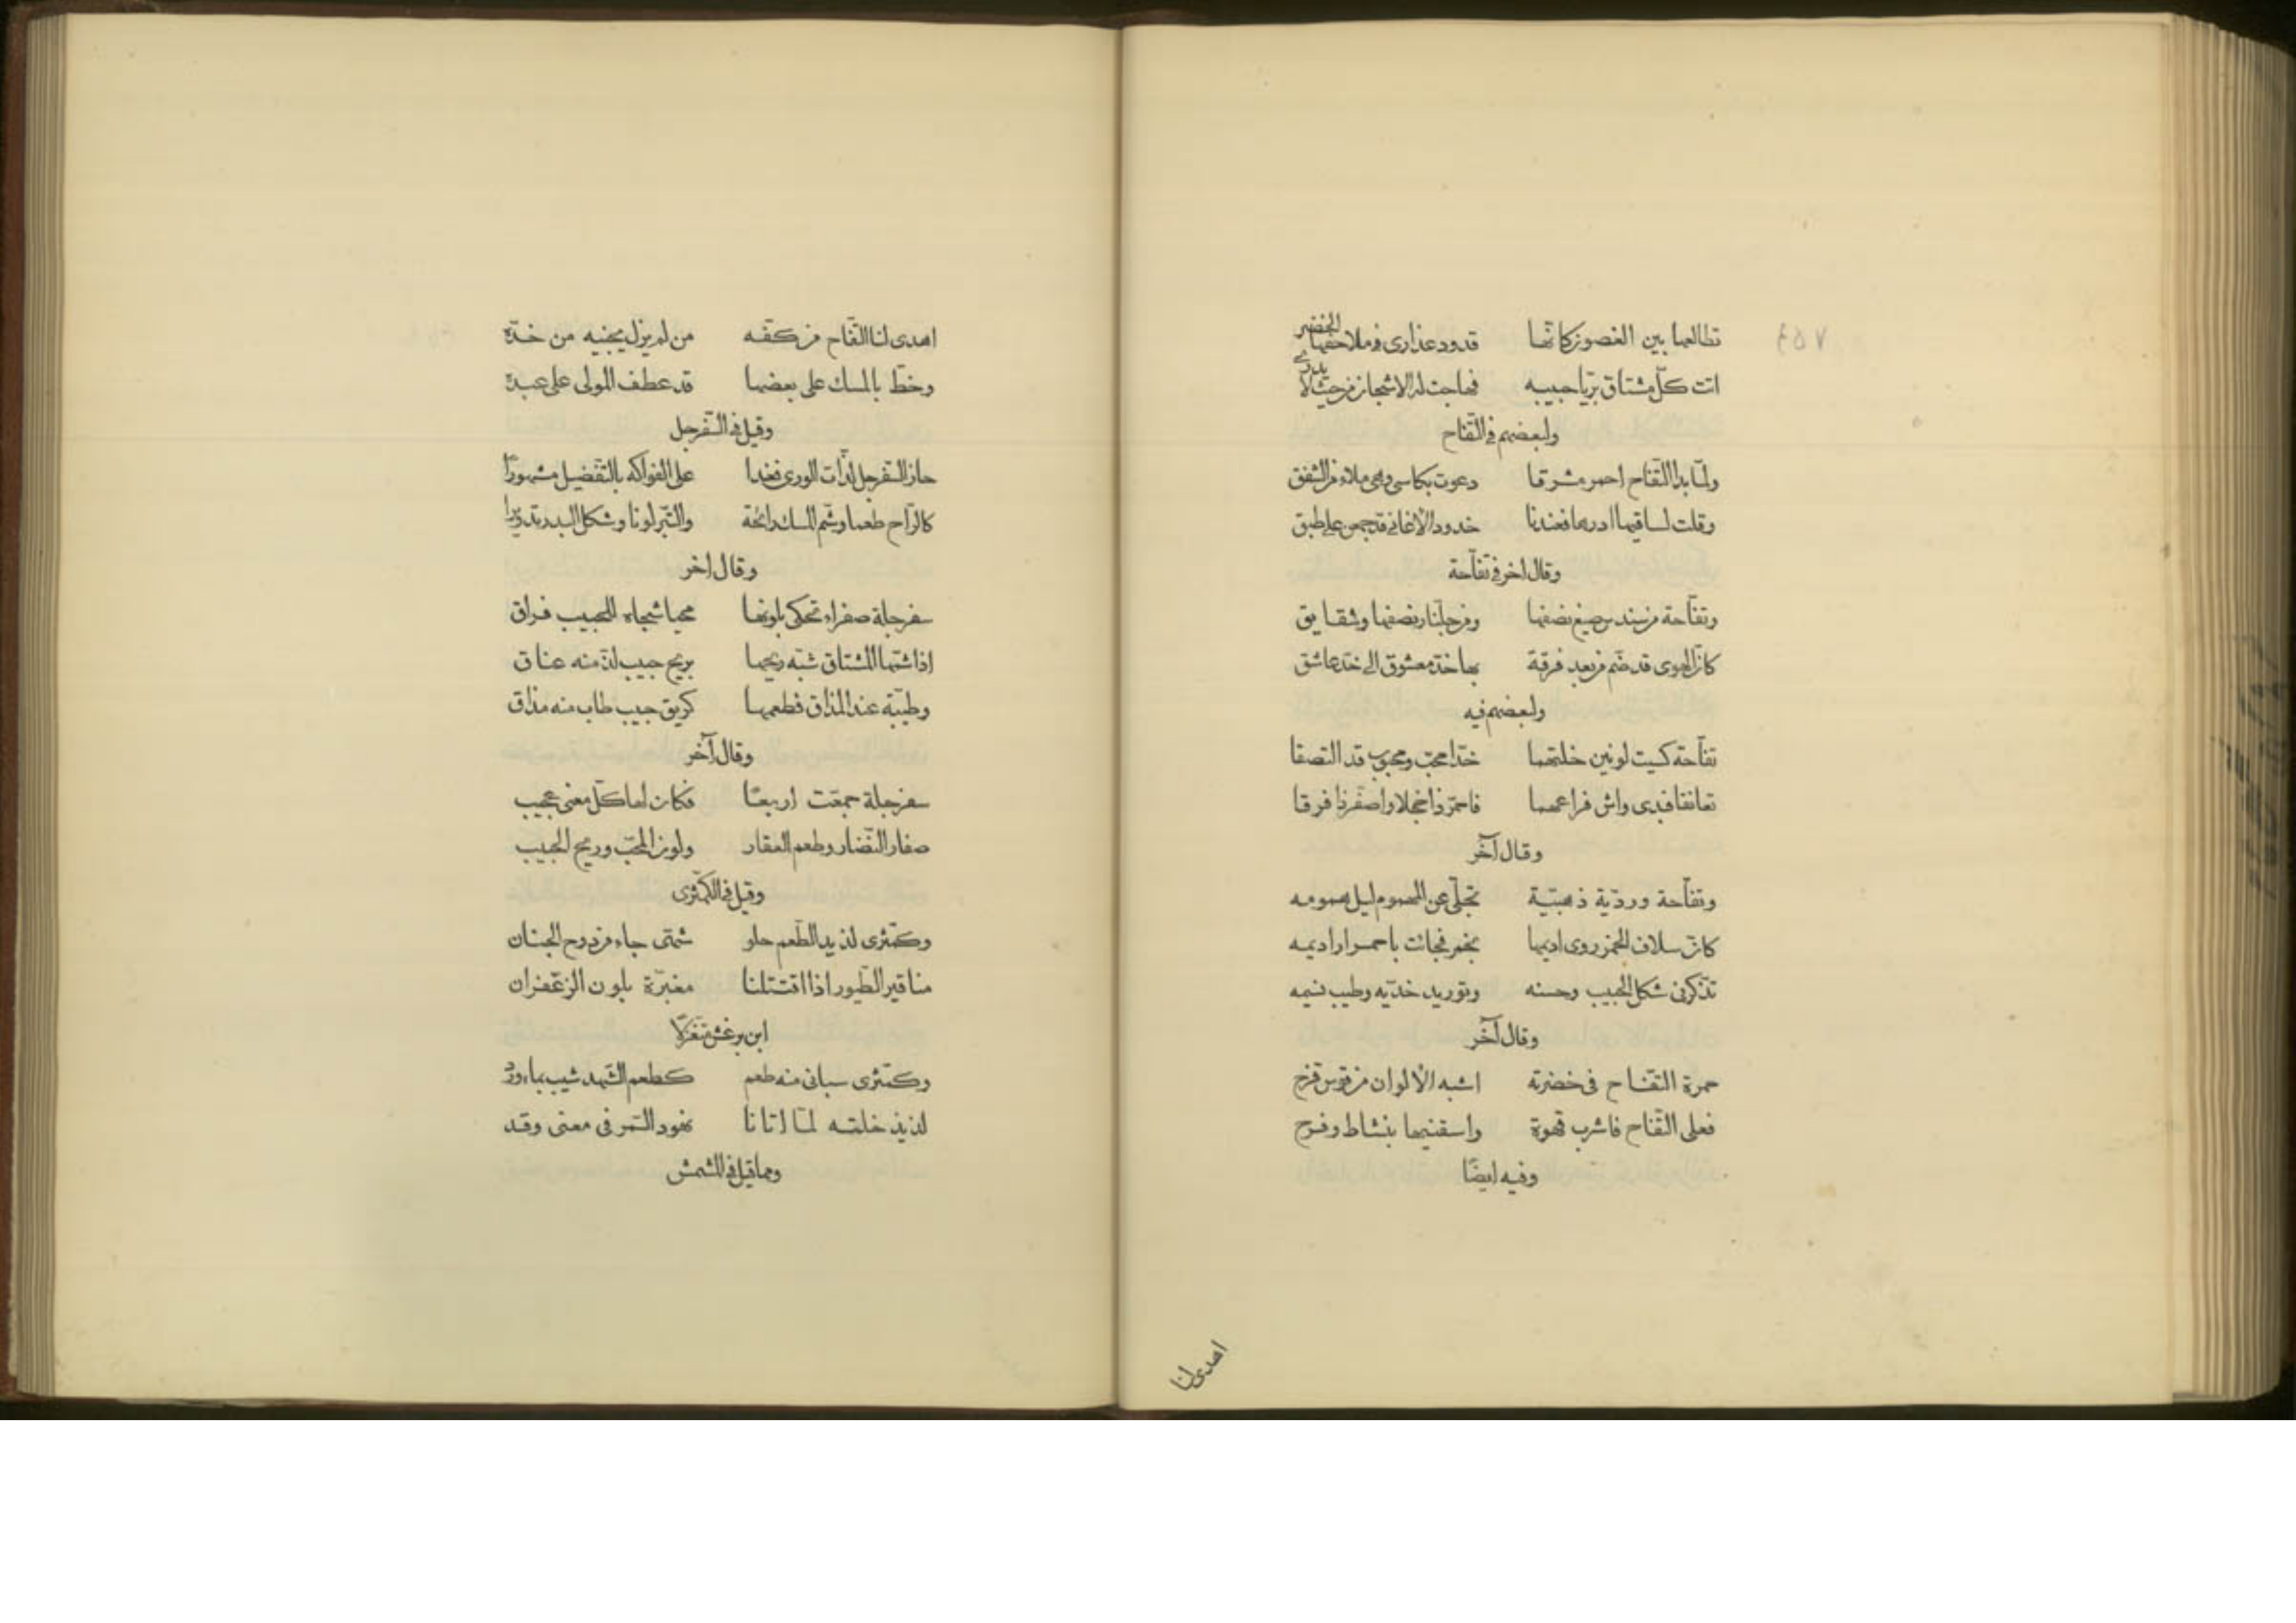 ٧٥٤
تطالعها بين الغصون كانها قدود عذارى فى ملاحفها الخضر
اتت كل مشتاق بريا حبيبه فهاجت له الاشجان من حيث لا يدرى
ولبعضهم فى التفاح
ولما بدا التفاح احمر مشرقا دعوت بكاسى وهى ملاء من الشفق
وقلت لساقيها ادرها فعندنا خدود الاغانى قد جمعن على طبق
وقال اخر فى تفاحة
وتفاحة من سندس صيغ نصفها ومن جلنار نصفها وشقايق
كان الهوى قد ضم من بعد فرقة بها خد معشوق الى خد عاشق
ولبعضهم فيه
تفاحة كسيت لونين خلتهما خدا محب ومحبوب قد التصقا
تعانقا فبدى واش فراعهما فاحمر ذا خجلا واصفر ذا فرقا
وقال آخر
وتفاحة وردية ذهبية تجلى عن المهموم ليل همومه
كان سلاف الخمر روى اديمها بخمر فجائت باحمرار اديمه
تذكرنى شكل الحبيب وحسنه وتوريد خديه وطيب نسيمه
وقال آخر
حمرة التفاح فى خضرته اشبه الالوان من قوس قزح
فعلى التفاح فاشرب قهوة واسقنيها بنشاط وفرح
وفيه ايضا
اهدى لنا
اهدى لنا التفاح من كفه من لم يزل يجنيه من خده
وخط بالمسك على بعضها قد عطف المولى على عبده
وقيل فى السفرجل
حاز السفرجل لذات الورى فغدا على الفواكه بالتفضيل مشهورا
كالراح طعما وشم المسك رائحة والتبر لونا وشكل البدر تدويرا
وقال اخر
سفرجلة صفراء تحكى بلونها محبا شجاه للحبيب فراق
اذا شمها المشتاق شبه ريحها بريح حبيب لذ منه عناق
وطيبة عند المذاق فطعمها كريق حبيب طاب منه مذاق
وقال آخر
سفرجلة جمعت اربعا فكان لها كل معنى عجيب
صفار النضار وطعم العقار ولون المحب وريح الحبيب
وقيل فى الكمثرى
وكمثرى لذيد الطعم حلو شهى جاء من دوح الجنان
مناقير الطيور اذا اقتتلنا مغبرة بلون الزعفران
ابن برغش متغزلا
وكمثرى سبانى منه طعم كطعم الشهد شيب بماء ورد
لذيذ خلته لما اتانا نهود السمر فى معنى وقد
ومما قيل فى المشمش